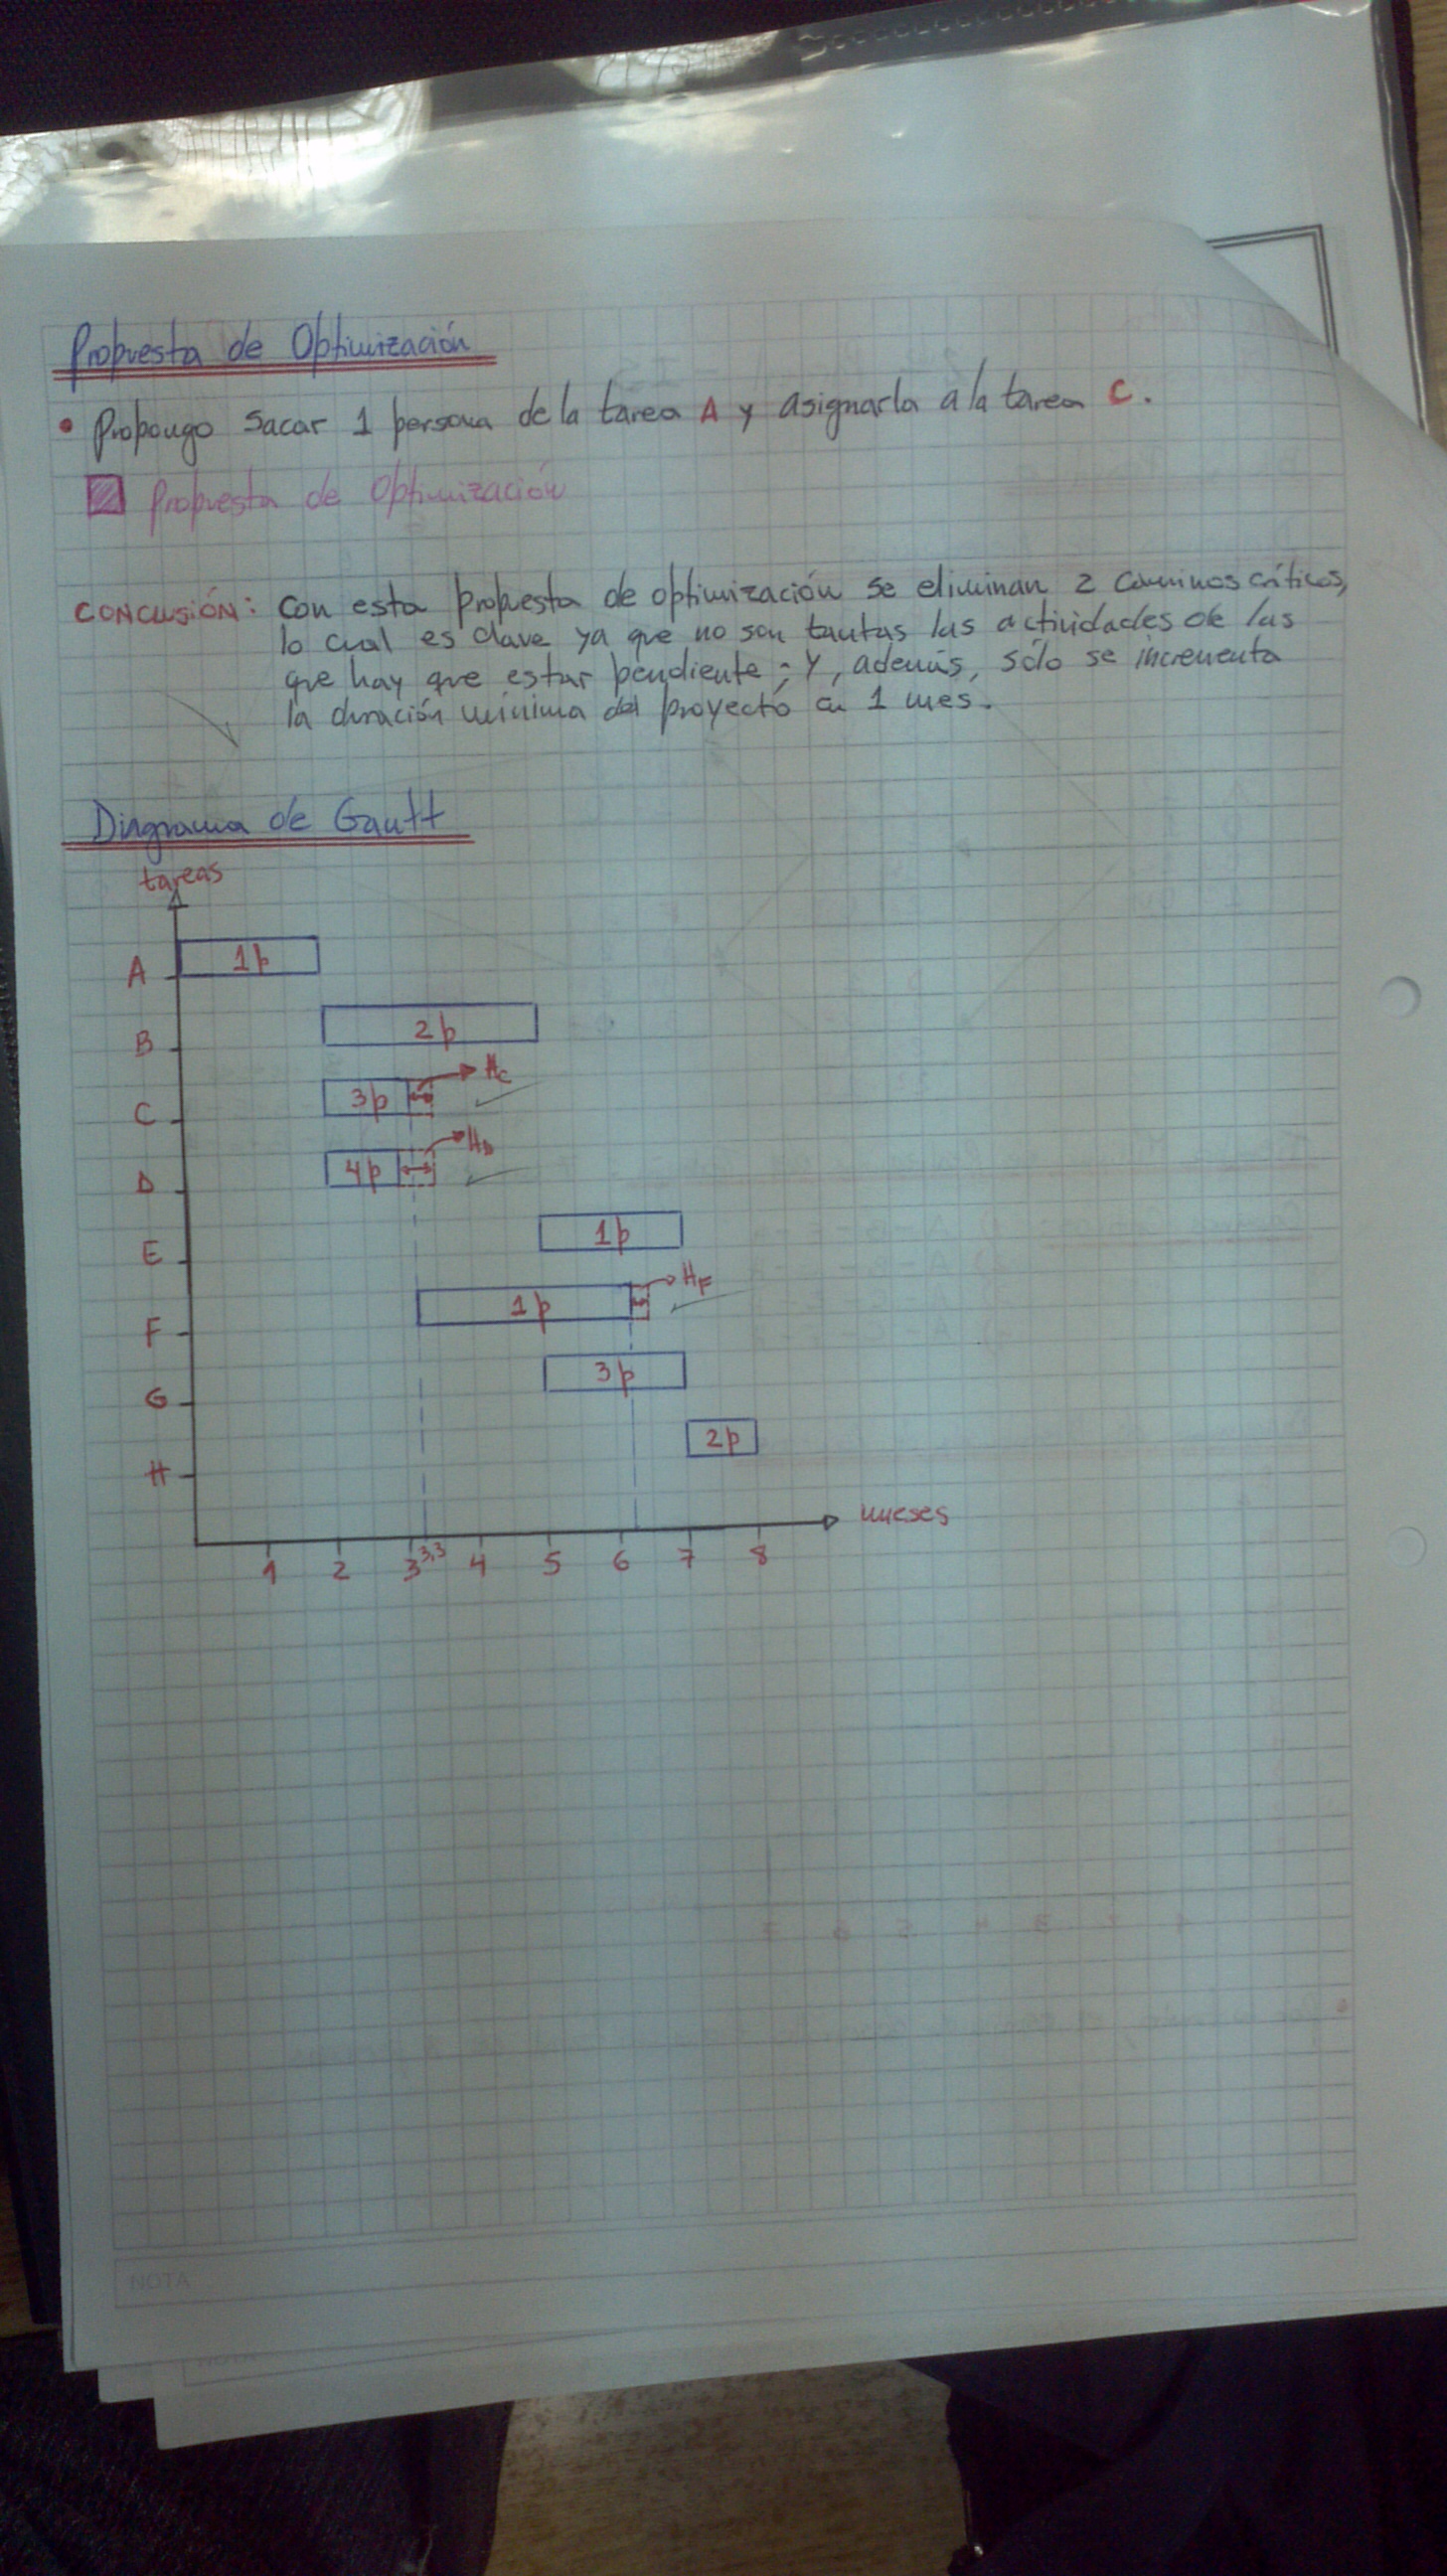 Propuesta de Optimización
• Propongo sacar 1 persona de la tarea A y asignarla a la tarea C.
Propuesta de Optimización
CONCLUSIÓN: Con esta propuesta de optimización se eliminan 2 caminos críticos,
lo cual es clave ya que no son tantas las actividades de las
que hay que estar pendiente; Y, además, sólo se incrementa
la duración mínima del proyecto en 1 mes.
Diagrama de Gantt
tareas
A 1p
B 2p
C 3p HC
D 4p HD
E 1p
F 1p HF
G 3p
H 2p
meses
1 2 3 3,3 4 5 6 7 8
NOTA